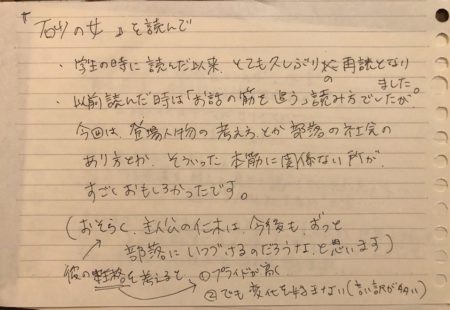 『砂の女』を読んで
・学生の時に読んだ以来、とても久しぶりの再読となりました。
・以前読んだ時は「お話の筋を追う」読み方でしたが、
今回は、登場人物の考え方とか部落の社会の
あり方とか、そういった本筋に関係ない所が、
すごくおもしろかったです。
(おそらく、主人公の仁木は、今後も、ずっと
部落にいつづけるのだろうな、と思います)
彼の性格を考えると、①プライドが高く
②でも変化を好まない(言い訳が多い)